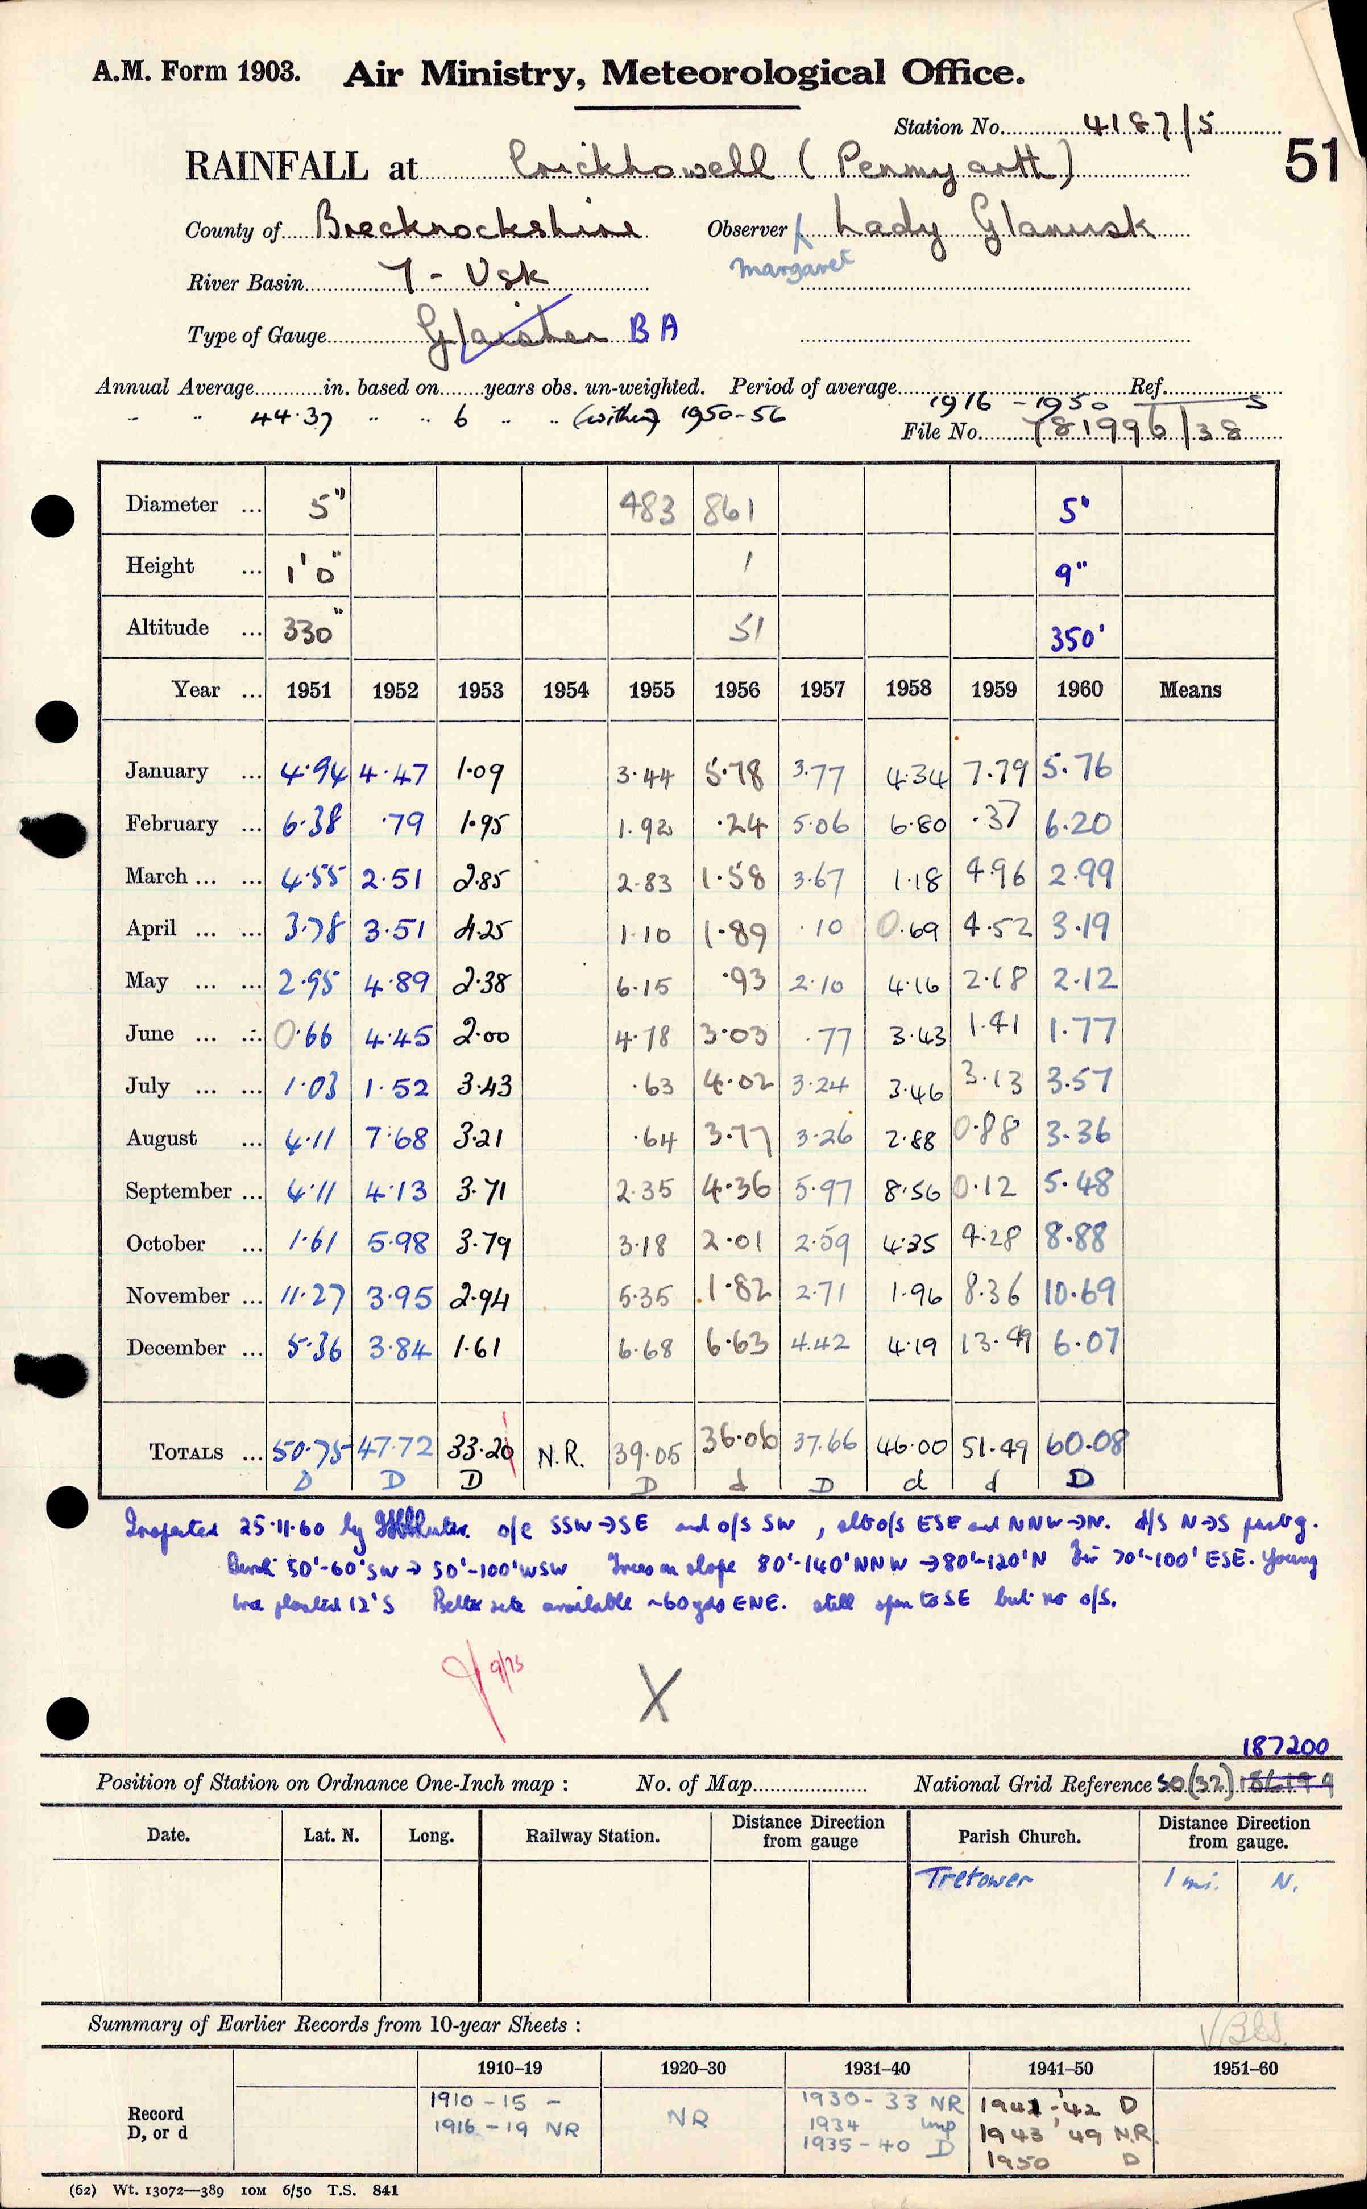 A.M. Form 1903. Air Ministry, Meteorological Office.
Station No. 4187/5
51
RAINFALL at Crickhowell (Pennyartt)
County of Brecknockshire Observer Lady Glanusk
Margaret
River Basin 7 - Usk
Type of Gauge Glaisher B A
Annual Average in. based on years obs. un-weighted. Period of average 1916 - 1950 Ref.
- " 44.37 " " 6 " " (within) 1950-56
File No. 781996/38 S
Diameter ... 5" 483 861 5"
Height ... 1'0" 1 9"
Altitude ... 330" 51 350'
Year ... 1951 1952 1953 1954 1955 1956 1957 1958 1959 1960 Means
January ... 4.94 4.47 1.09 3.44 5.78 3.77 4.34 7.79 5.76
February ... 6.38 .79 1.95 1.92 .24 5.06 6.80 .37 6.20
March ... ... 4.55 2.51 2.85 2.83 1.58 3.67 1.18 4.96 2.99
April ... ... 3.78 3.51 4.25 1.10 1.89 .10 0.69 4.52 3.19
May ... ... 2.95 4.89 2.38 6.15 .93 2.10 4.16 2.18 2.12
June ... ... 0.66 4.45 2.00 4.78 3.03 .77 3.43 1.41 1.77
July ... ... 1.03 1.52 3.43 .63 4.02 3.24 3.46 3.13 3.57
August ... 4.11 7.68 3.21 .64 3.77 3.26 2.88 0.88 3.36
September ... 4.11 4.13 3.71 2.35 4.36 5.97 8.56 0.12 5.48
October ... 1.61 5.98 3.79 3.18 2.01 2.59 4.35 4.28 8.88
November ... 11.27 3.95 2.94 5.35 1.82 2.71 1.96 8.36 10.69
December ... 5.36 3.84 1.61 6.68 6.63 4.42 4.19 13.49 6.07
TOTALS ... 50.75 47.72 33.20 N.R. 39.05 36.06 37.66 46.00 51.49 60.08
D D D D d D d d D
Inspected 25.11.60 by o/e SSW→SE and o/s SW, also o/s ESE and NNW→N. N→S
50'-60' SW → 50'-100' WSW Trees on slope 80'-140' NNW → 80'-120' N Fir 70'-100' ESE. Young
tree planted 12' S Better site available ~60yds ENE. still open to SE but no o/s.
9/75
X
187200
Position of Station on Ordnance One-Inch map : No. of Map National Grid Reference SO(32) 186199
Date. Lat. N. Long. Railway Station. Distance Direction from gauge Parish Church. Distance Direction from gauge.
Tretower 1 mi. N.
Summary of Earlier Records from 10-year Sheets :
1910–19 1920–30 1931–40 1941–50 1951–60
Record
D, or d
1910-15 - 1930-33 NR 1941-'42 D
1916-19 NR NR 1934 imp 1943 '49 N.R.
1935-40 D 1950 D
(62) Wt. 13072—389 10M 6/50 T.S. 841